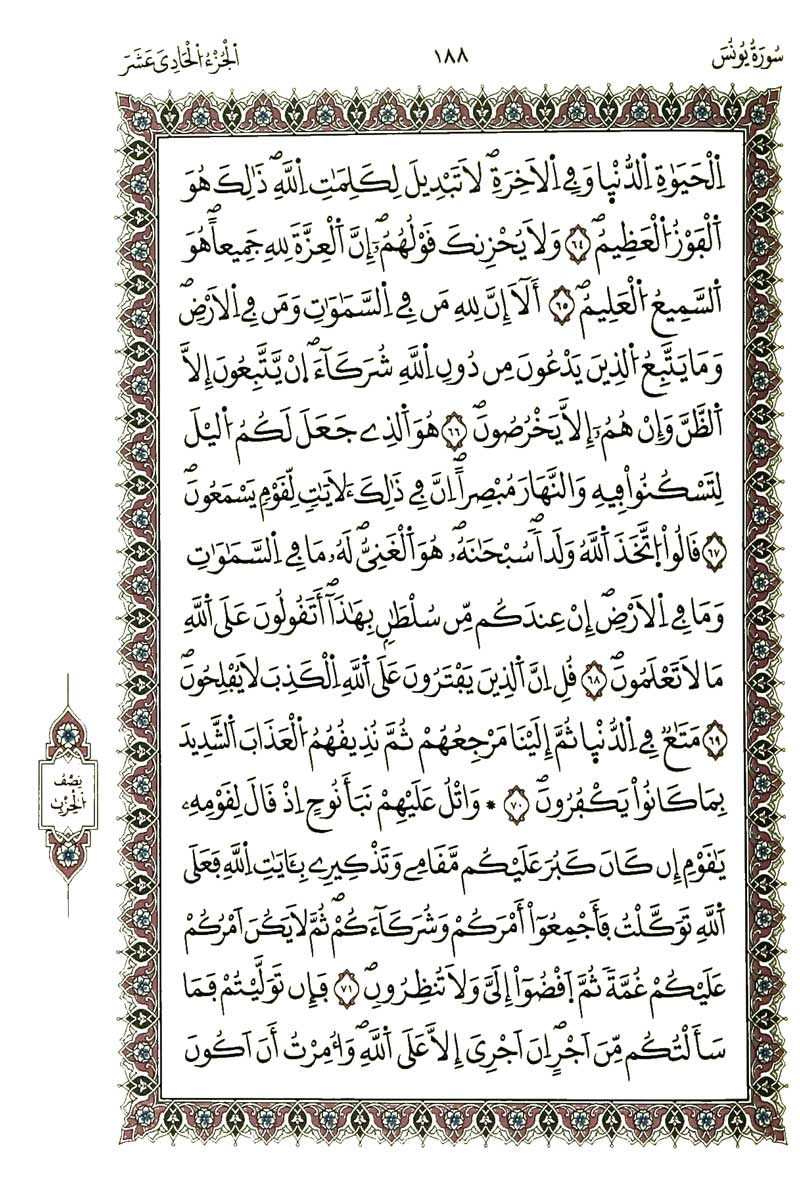 سُورَةُ يُونُسَ ١٨٨ اَلْجُزْءُ الْحَادِىَ عَشَرَ
اِ۬لْحَيَوٰةِ اِ۬لدُّنْي۪ا وَفِے اِ۬لَاخِرَةِۖ لَا تَبْدِيلَ لِكَلِمَٰتِ اِ۬للَّهِۖ ذَٰلِكَ هُوَ
اَ۬لْفَوْزُ اُ۬لْعَظِيمُۖ ٦٤ وَلَا يُحْزِنكَ قَوْلُهُمُۥٓۖ إِنَّ اَ۬لْعِزَّةَ لِلهِ جَمِيعاًۖ هُوَ
اَ۬لسَّمِيعُ اُ۬لْعَلِيمُۖ ٦٥ أَلَآ إِنَّ لِلهِ مَن فِے اِ۬لسَّمَٰوَٰتِ وَمَن فِے اِ۬لَارْضِۖ
وَمَا يَتَّبِعُ اُ۬لذِينَ يَدْعُونَ مِن دُونِ اِ۬للَّهِ شُرَكَآءَۖ اِنْ يَّتَّبِعُونَ إِلَّا
اَ۬لظَّنَّ وَإِنْ هُمُۥٓ إِلَّا يَخْرُصُونَۖ ٦٦ هُوَ اَ۬لذِے جَعَلَ لَكُمُ اُ۬ليْلَ
لِتَسْكُنُواْ فِيهِ وَالنَّهَارَ مُبْصِراًۖ اِنَّ فِے ذَٰلِكَ ءَلَايَٰتٖ لِّقَوْمٖ يَسْمَعُونَۖ
٦٧ قَالُواْ اُ۪تَّخَذَ اَ۬للَّهُ وَلَداٗۖ سُبْحَٰنَهُۥۖ هُوَ اَ۬لْغَنِيُّۖ لَهُۥ مَا فِے اِ۬لسَّمَٰوَٰتِ
وَمَا فِے اِ۬لَارْضِۖ إِنْ عِندَكُم مِّن سُلْطَٰنِۢ بِهَٰذَآۖ أَتَقُولُونَ عَلَى اَ۬للَّهِ
مَا لَا تَعْلَمُونَۖ ٦٨ قُلِ اِنَّ اَ۬لذِينَ يَفْتَرُونَ عَلَى اَ۬للَّهِ اِ۬لْكَذِبَ لَا يُفْلِحُونَۖ
٦٩ مَتَٰعٞ فِے اِ۬لدُّنْي۪ا ثُمَّ إِلَيْنَا مَرْجِعُهُمْ ثُمَّ نُذِيقُهُمُ اُ۬لْعَذَابَ اَ۬لشَّدِيدَ
بِمَا كَانُواْ يَكْفُرُونَۖ ٧٠ * وَاتْلُ عَلَيْهِمْ نَبَأَ نُوحٍ اِذْ قَالَ لِقَوْمِهِۦ
يَٰقَوْمِ إِن كَانَ كَبُرَ عَلَيْكُم مَّقَامِے وَتَذْكِيرِے بِـَٔايَٰتِ اِ۬للَّهِ فَعَلَى
اَ۬للَّهِ تَوَكَّلْتُ فَأَجْمِعُوٓاْ أَمْرَكُمْ وَشُرَكَآءَكُمْۖ ثُمَّ لَا يَكُنَ اَمْرُكُمْ
عَلَيْكُمْ غُمَّةٗ ثُمَّ اَ۪قْضُوٓاْ إِلَيَّ وَلَا تُنظِرُونِۖ ٧١ فَإِن تَوَلَّيْتُمْ فَمَا
سَأَلْتُكُم مِّنَ اَجْرٍۖ اِنَ اَجْرِيَ إِلَّا عَلَى اَ۬للَّهِۖ وَأُمِرْتُ أَنَ اَكُونَ
نِصْفُ
اَلْحِزْبِ